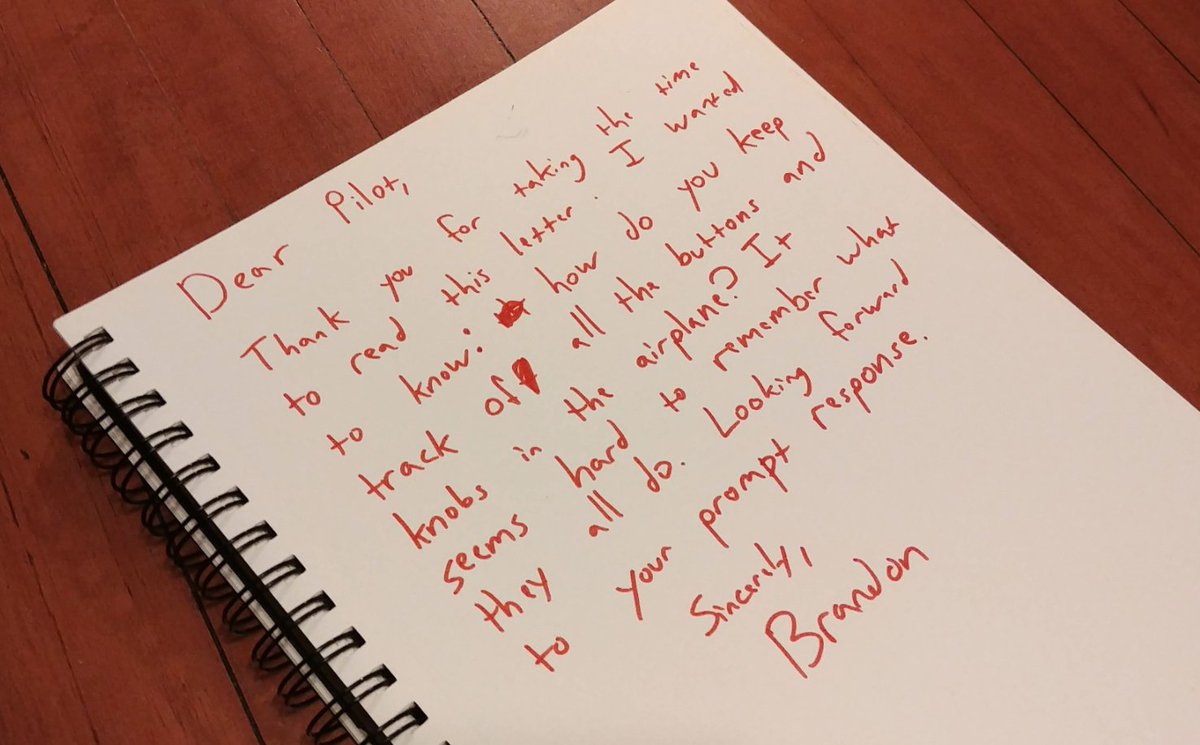 Dear Pilot,
Thank you for taking the time
to read this letter. I wanted
to know: how do you keep
track of all the buttons and
knobs in the airplane? It
seems hard to remember what
they all do. Looking forward
to your prompt response.
Sincerily,
Brandon